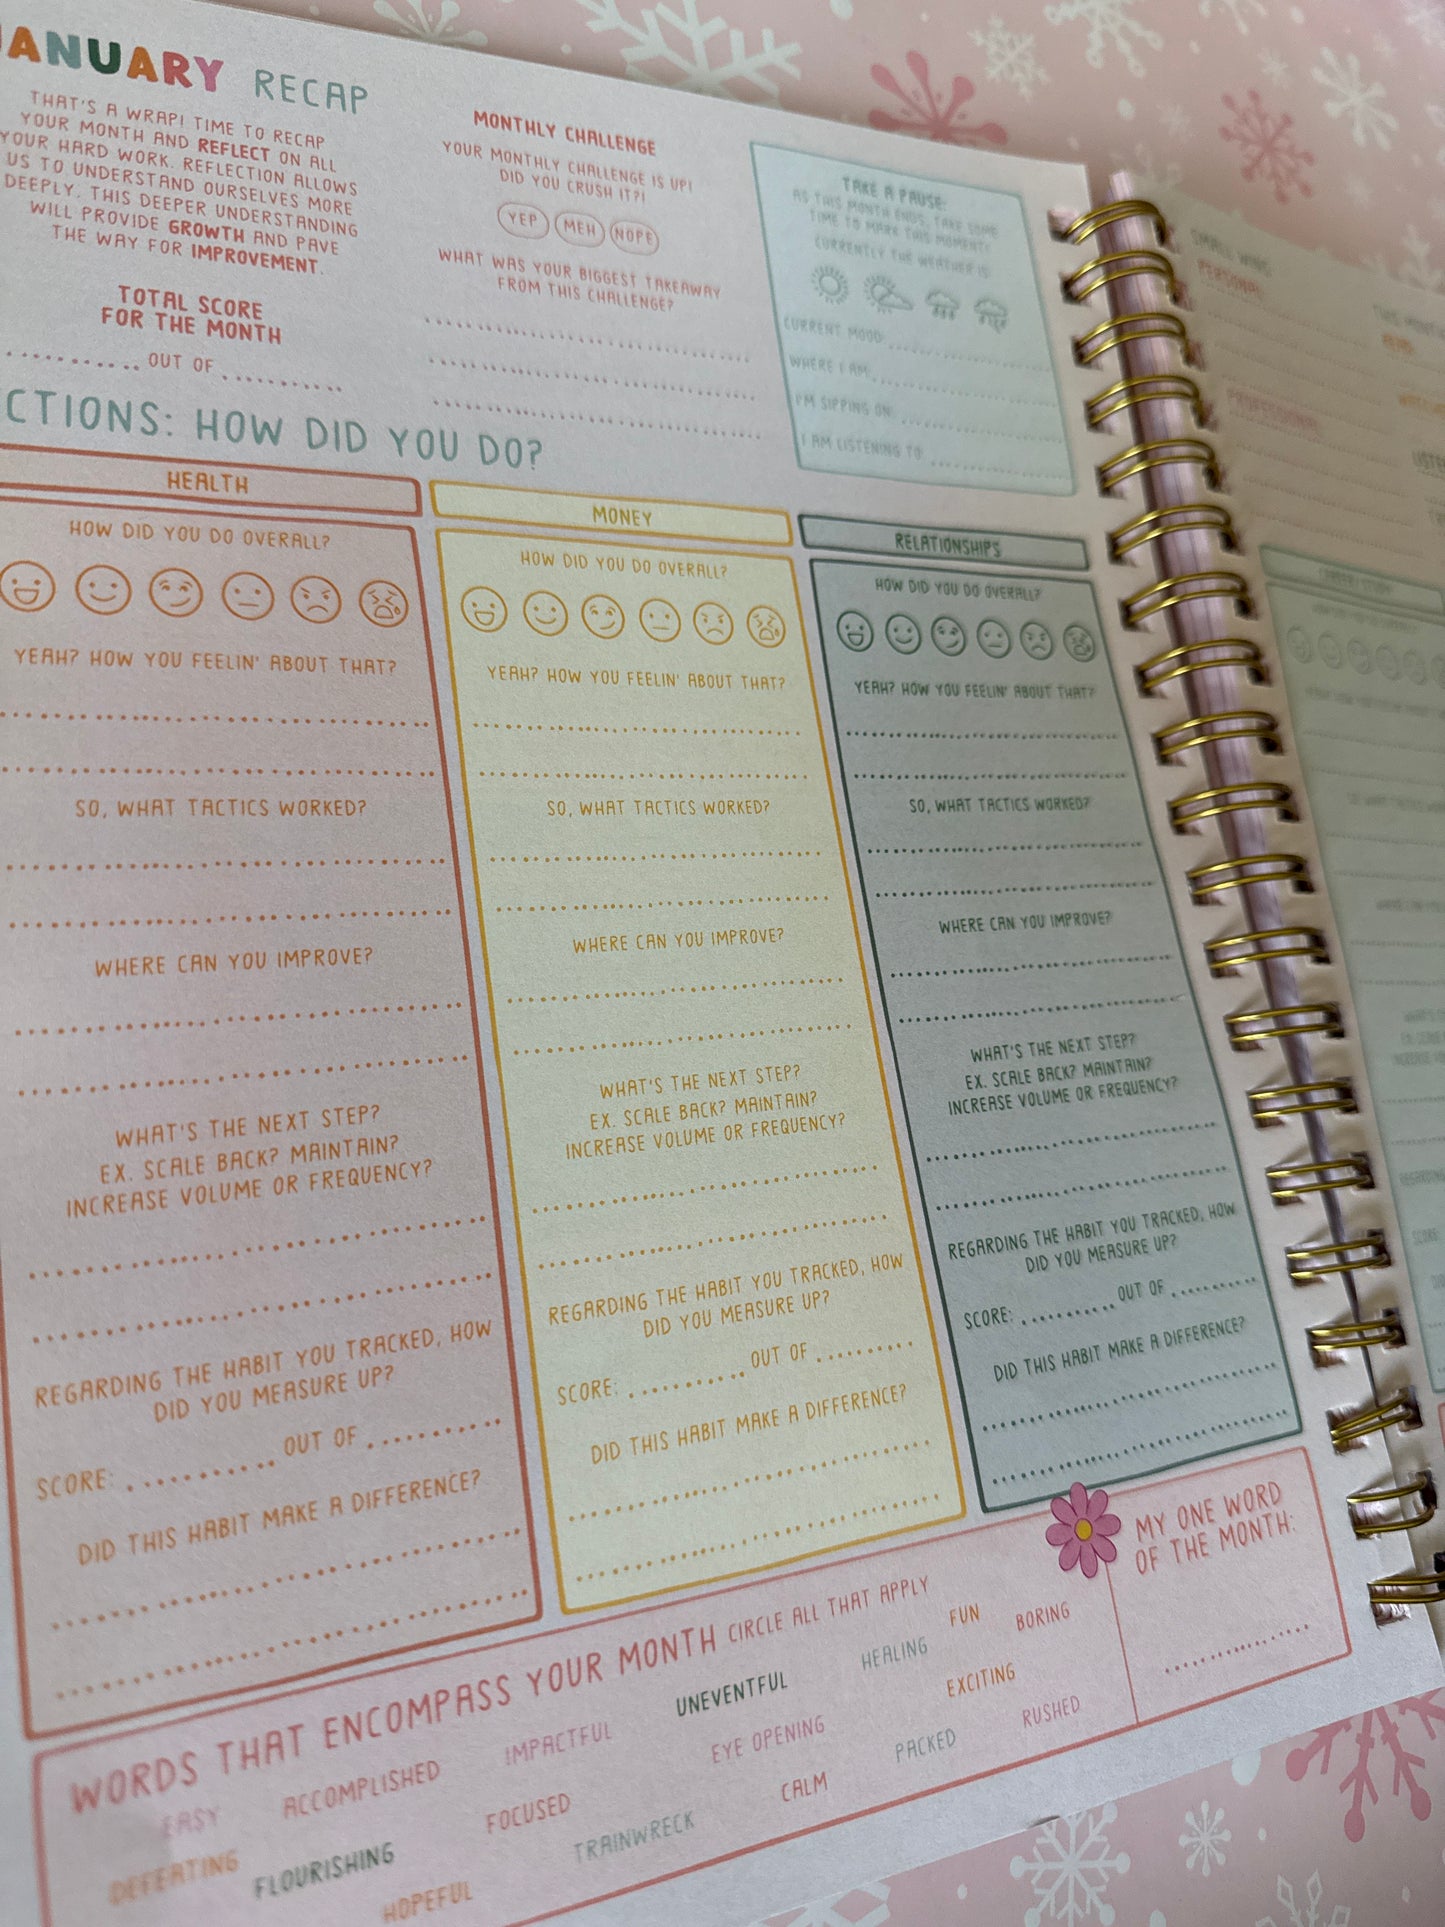 ANUARY RECAP
THAT'S A WRAP! TIME TO RECAP
YOUR MONTH AND REFLECT ON ALL
YOUR HARD WORK. REFLECTION ALLOWS
US TO UNDERSTAND OURSELVES MORE
DEEPLY. THIS DEEPER UNDERSTANDING
WILL PROVIDE GROWTH AND PAVE
THE WAY FOR IMPROVEMENT.
TOTAL SCORE
FOR THE MONTH
OUT OF
MONTHLY CHALLENGE
YOUR MONTHLY CHALLENGE IS UP!
DID YOU CRUSH IT?!
YEP MEH NOPE
WHAT WAS YOUR BIGGEST TAKEAWAY
FROM THIS CHALLENGE?
TAKE A PAUSE:
AS THIS MONTH ENDS, TAKE SOME
TIME TO MARK THIS MOMENT!
CURRENTLY THE WEATHER IS
CURRENT MOOD:
WHERE I AM:
I'M SIPPING ON:
I AM LISTENING TO:
CTIONS: HOW DID YOU DO?
HEALTH
HOW DID YOU DO OVERALL?
YEAH? HOW YOU FEELIN' ABOUT THAT?
SO, WHAT TACTICS WORKED?
WHERE CAN YOU IMPROVE?
WHAT'S THE NEXT STEP?
EX. SCALE BACK? MAINTAIN?
INCREASE VOLUME OR FREQUENCY?
REGARDING THE HABIT YOU TRACKED, HOW
DID YOU MEASURE UP?
SCORE: OUT OF
DID THIS HABIT MAKE A DIFFERENCE?
MONEY
HOW DID YOU DO OVERALL?
YEAH? HOW YOU FEELIN' ABOUT THAT?
SO, WHAT TACTICS WORKED?
WHERE CAN YOU IMPROVE?
WHAT'S THE NEXT STEP?
EX. SCALE BACK? MAINTAIN?
INCREASE VOLUME OR FREQUENCY?
REGARDING THE HABIT YOU TRACKED, HOW
DID YOU MEASURE UP?
SCORE: OUT OF
DID THIS HABIT MAKE A DIFFERENCE?
RELATIONSHIPS
HOW DID YOU DO OVERALL?
YEAH? HOW YOU FEELIN' ABOUT THAT?
SO, WHAT TACTICS WORKED?
WHERE CAN YOU IMPROVE?
WHAT'S THE NEXT STEP?
EX. SCALE BACK? MAINTAIN?
INCREASE VOLUME OR FREQUENCY?
REGARDING THE HABIT YOU TRACKED, HOW
DID YOU MEASURE UP?
SCORE: OUT OF
DID THIS HABIT MAKE A DIFFERENCE?
WORDS THAT ENCOMPASS YOUR MONTH CIRCLE ALL THAT APPLY
EASY ACCOMPLISHED IMPACTFUL UNEVENTFUL HEALING FUN BORING
DEFEATING FLOURISHING FOCUSED EYE OPENING EXCITING
HOPEFUL TRAINWRECK CALM PACKED RUSHED
MY ONE WORD
OF THE MONTH:
SMALL WINS
PERSONAL
PROFESSIONAL